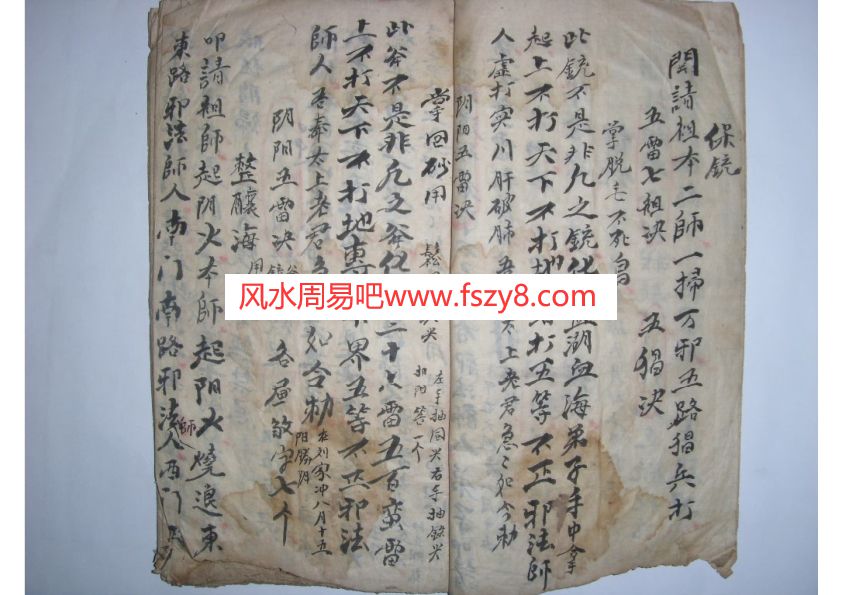 保銃
開請祖本二師一掃万邪五路猖兵打
五雷七祖决 五猖决
掌脱毛不死
此銃不是非凡之銃化血湖血海弟子手中拿
起上不打天下不打地打五等不正邪法師
人虚打实川肝破肺吾太上老君急々如令勅
阴阳五雷决
左手抽同火右手抽火
扣阳答一个
掌回砂用
此斧不是非凡之斧化三十六雷五百蛮雷
上不打天下不打地專下界五等不正邪法
師人吾奉太上老君如令勅
在刘家冲八月十五
阴阳五雷决 各屋敬字七个
整釀海用
叩請祖師起阴火本師起阳火燒退東
東路邪法師人南门南路邪法師人西门
风水周易吧www.fszy8.com